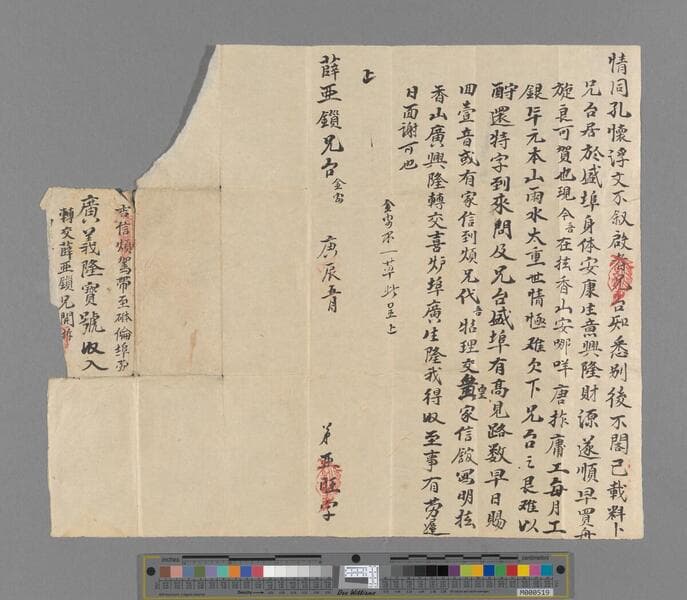 情同孔懷浮文不叙啟者兄台知悉別後不閣已載料卜
兄台居於盛埠身体安康生意興隆財源遂順早買舟
旋良可賀也現今吾在扶香山安哪咩唐拃庸工每月工
銀毕元本山雨水太重世情極难欠下兄台之艮难以
酧還特字到來問及兄台盛埠有髙見路数早日賜
回壹音或有家信到煩兄代吾怙理交皇家信舘寫明扶
香山廣興隆轉交喜炉埠廣生隆我得収至事有劳逢
日面謝可也
金安不一草此呈上
上
薛亚鎖兄台 金安
庚辰五月
弟亚旺字
吉信煩駕帶至砵倫埠
廣義隆寳號収入
轉交薛亚鎖兄開拆
inches
centimeters
Don Williams
M000519